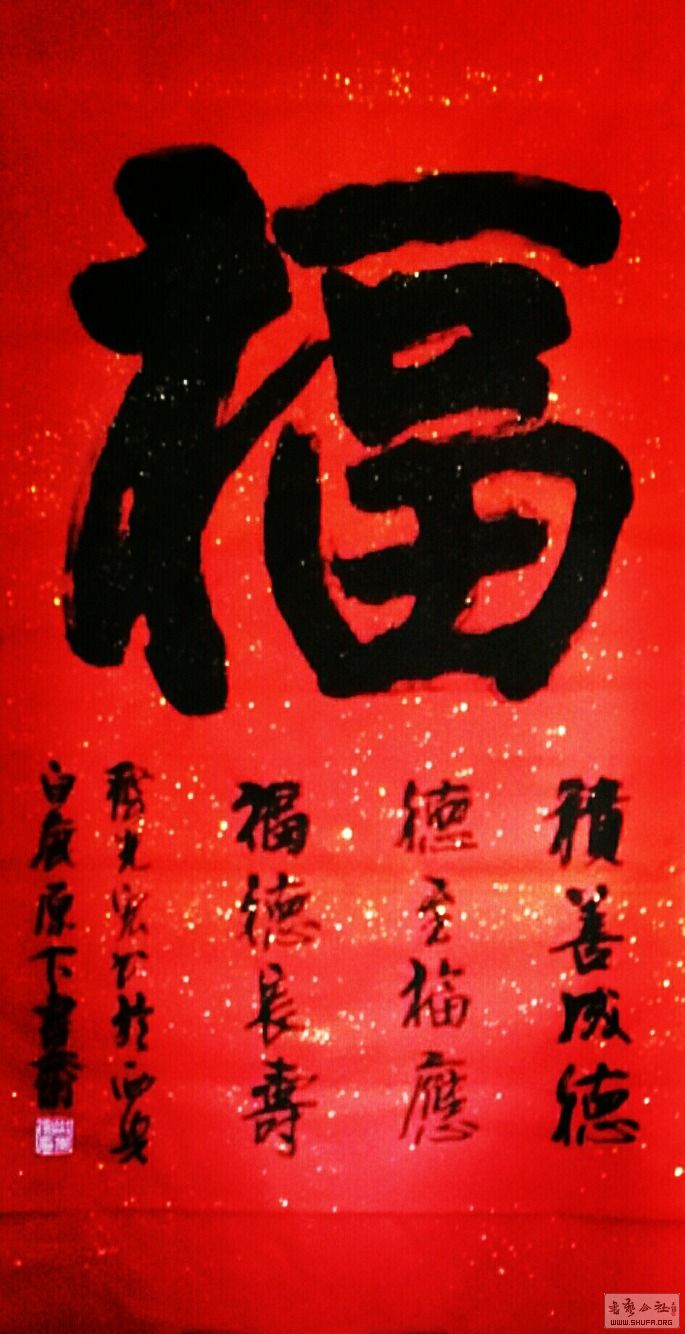 福
積善成德
德至福應
福德長壽
光宏书於西安
白鹿原下書齋
书艺公社
WWW.SHUFA.ORG